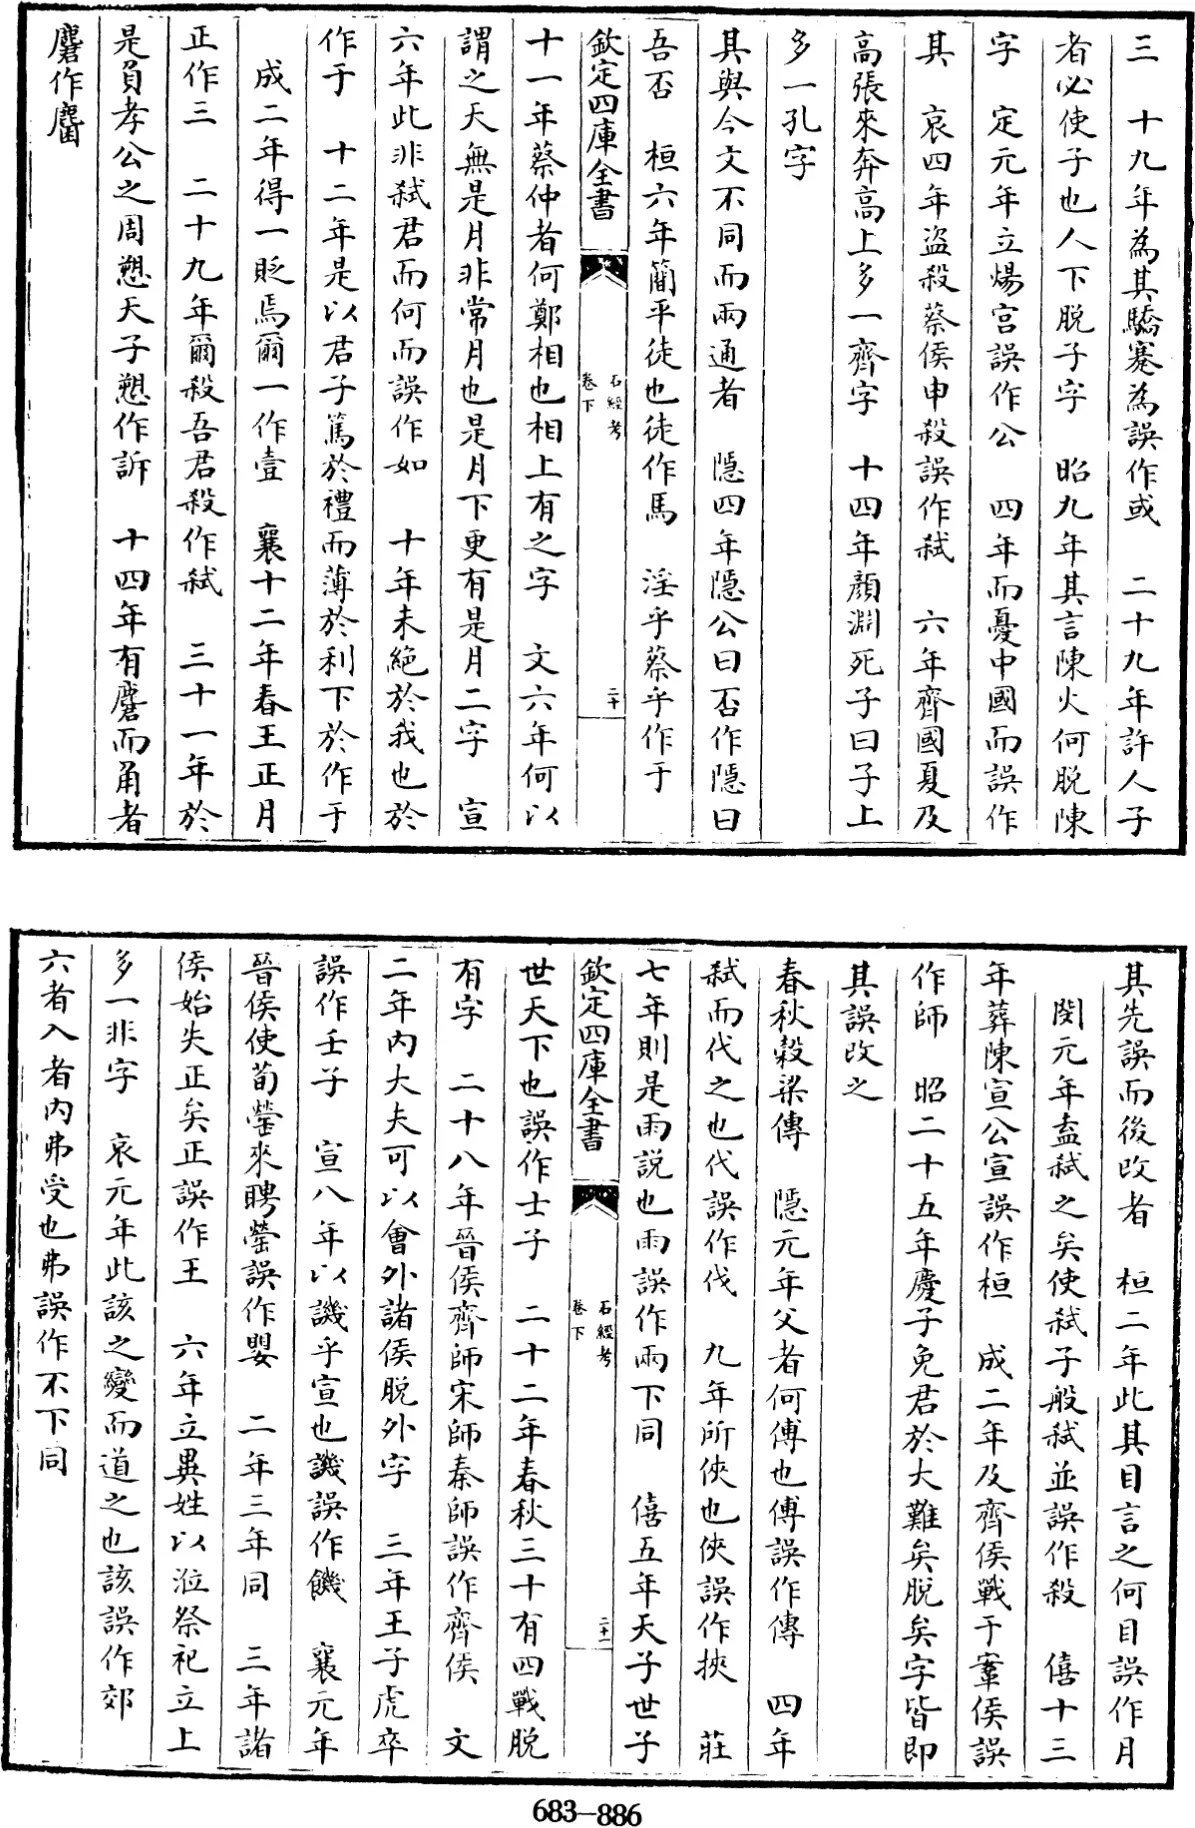 三　十九年為其驕蹇為誤作或　二十九年許人子
者必使子也人下脱子字　昭九年其言陳火何脱陳
字　定元年立煬宫誤作公　四年而憂中國而誤作
其　哀四年盗殺蔡侯申殺誤作弑　六年齊國夏及
高張來奔高上多一齊字　十四年顔淵死子曰子上
多一孔字
其與今文不同而兩通者　隱四年隱公曰否作隱曰
吾否　桓六年蕳乎徒也徒作馬　淫乎蔡乎作于
欽定四庫全書
石經考
卷下
二十
十一年蔡仲者何鄭相也相上有之字　文六年何以
謂之天無是月非常月也是月下更有是月二字　宣
六年此非弑君而何而誤作如　十年未絶於我也於
作于　十二年是以君子篤於禮而薄於利下於作于
成二年得一貶焉爾一作壹　襄十二年春王正月
正作三　二十九年爾殺吾君殺作弑　三十一年於
是負孝公之周愬天子愬作訴　十四年有麏而角者
麏作麕
其先誤而後改者　桓二年此其目言之何目誤作月
閔元年盍弑之矣使弑子般弑並誤作殺　僖十三
年葬陳宣公宣誤作桓　成二年及齊侯戰于鞌侯誤
作師　昭二十五年慶子免君於大難矣脱矣字皆即
其誤改之
春秋榖梁傳　隱元年父者何傅也傅誤作傳　四年
弑而代之也代誤作伐　九年所俠也俠誤作挾　莊
七年則是雨説也雨誤作兩下同　僖五年天子世子
欽定四庫全書
石經考
卷下
二十一
世天下也誤作士子　二十二年春秋三十有四戰脱
有字　二十八年晉侯齊師宋師秦師誤作齊侯　文
二年内大夫可以會外諸侯脱外字　三年王子虎卒
誤作壬子　宣八年以譏乎宣也譏誤作饑　襄元年
晉侯使荀罃來聘罃誤作嬰　二年三年同　三年諸
侯始失正矣正誤作王　六年立異姓以涖祭祀立上
多一非字　哀元年此該之變而道之也該誤作郊
六者入者内弗受也弗誤作不下同
683—886